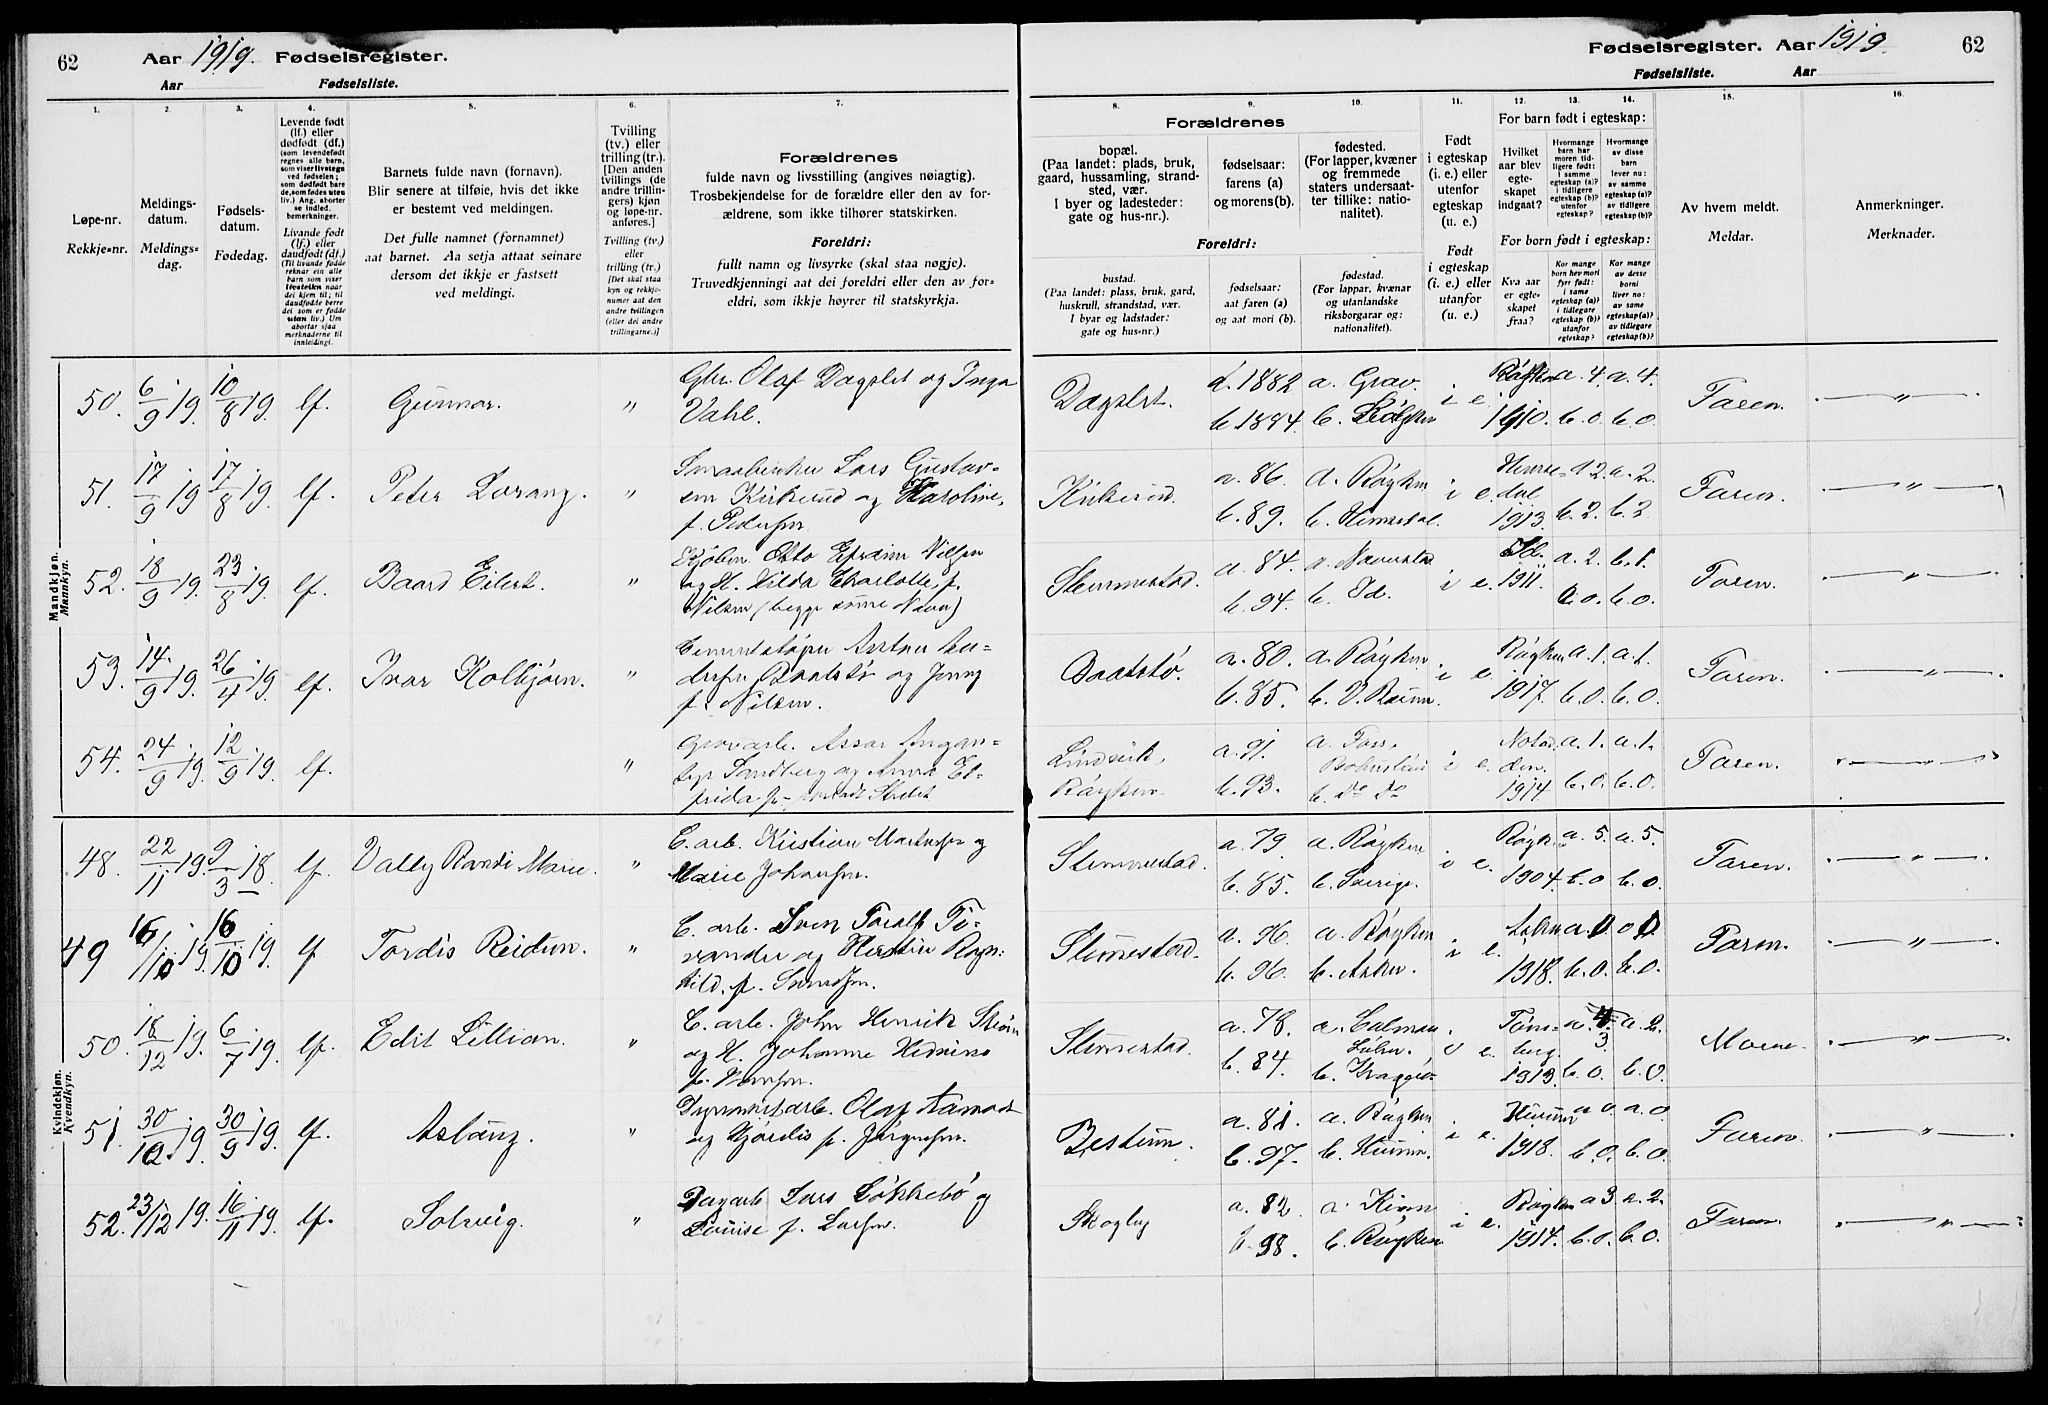 62 Aar 1919. Fødselsregister.
Aar Fødselsliste.
Fødselsregister. Aar 1919. 62
Fødselsliste. Aar
1. 2. 3. 4. 5. 6. 7.
8. 9. 10. 11. 12. 13. 14. 15. 16.
Løpe-nr.
Rekkje-nr.
Meldings-
datum.
Meldings-
dag.
Fødsels-
datum.
Fødedag.
Levende født
(lf.) eller
dødfødt (df.)
(som levendefødt
regnes alle barn,
som viser livstegn
ved fødselen;
som dødfødt bare
de, som fødes uten
liv.) Ang. aborter
se indled.
bemerkninger.
Livande født
(lf.) eller
daudfødt (df.)
(Til livande fødde
reknar ein alle
barn som viser
livsteikn naar
dei kjem til; til
daudfødde berre
dei som er fødde
utan liv.) Um
abortar sjaa
merknaderne til
innleidingi.
Barnets fulde navn (fornavn).
Blir senere at tilføie, hvis det ikke
er bestemt ved meldingen.
Det fulle namnet (fornamnet)
aat barnet. Aa setja attaat seinare
dersom det ikkje er fastsett
ved meldingi.
Tvilling
(tv.) eller
trilling (tr.).
[Den anden
tvillings (de
andre trillin-
gers) kjøn
og løpe-nr.
anføres.]
Tvilling (tv.)
eller
trilling (tr.)
[Det skal staa
kyn og rekkje-
numer aat den
andre tvillingen
(eller dei andre
trillingarne.)]
Forældrenes
fulde navn og livsstilling (angives nøiagtig).
Trosbekjendelse for de forældre eller den av for-
ældrene, som ikke tilhører statskirken.
Foreldri:
fullt namn og livsyrke (skal staa nøgje).
Truvedkjenningi aat dei foreldri eller den av for-
eldri, som ikkje høyrer til statskyrkja.
Forældrenes
bopæl.
(Paa landet: plads, bruk,
gaard, hussamling, strand-
sted, vær.
I byer og ladesteder:
gate og hus-nr.).
fødselsaar:
farens (a)
og morens (b).
fødested.
(For lapper, kvæner
og fremmede
staters undersaat-
ter tillike: natio-
nalitet).
Foreldri:
bustad.
(Paa landet: plass, bruk, gard,
huskrull, strandstad, vær.
I byar og ladstader:
gate og hus-nr.)
fødselsaar:
aat faren (a)
og aat mori (b).
fødestad.
(For lappar, kvænar
og utanlandske
riksborgarar og:
nationalitet).
Født
i egteskap
(i. e.) eller
utenfor
egteskap
(u. e.)
Født
i egteskap
(i. e.) eller
utanfor
(u. e.)
For barn født i egteskap:
Hvilket
aar blev
egte-
skapet
indgaat?
Hvormange
barn har
moren tid-
ligere født:
i samme
egteskap (a)?
i tidligere
egteskap (b)?
utenfor
egteskap?
Hvormange
av disse
barn
lever nu:
av samme
egteskap (a)?
av tidligere
egteskap (b)?
For born født i egteskap:
Kva aar
er egte-
skapet
fraa?
Kor mange
born hev mori
fyrr født:
i same
egteskap (a)?
i tidlegare
egteskap (b)?
utanfor
egteskap?
Kor mange
av desse
borni
liver no:
av same
egteskap (a)?
av tidlegare
egteskap (b)?
Av hvem meldt.
Meldar.
Anmerkninger.
Merknader.
Mandkjøn.
Mannkyn.
50. 6/9 19. 10/8 19. lf. Gunnar. " Gbr. Olaf Dagslet og Inga
Vahl.
Dagslet. a. 1882 a. Grav. i e. Røyken a. 4. a. 4. Faren. "
b. 1894. b. Røyken 1910. b. 0. b. 0.
51. 17/9 19 17/8 19. lf. Peter Lorang. " Smaabruker Lars Gustav-
sen Kirkerud og Karoline,
f. Pedersen
Kirkerud. a. 86. a. Røyken i e. Hemse- a 2. a. 2. Faren. "
dal
b. 89. b. Hemsedal. 1913. b. 2. b. 2.
52. 18/9 19. 23/8 19. lf. Baard Eilert. " Otto Efraim Nilsen
og H. Hilda Charlotte f.
Nilsen (begge samme Navn)
Slemmestad. a. 84. a. Naverstad i e. Id. a. 2. b. 1. Faren. "
1911.
b. 94. b. Id. b. 0. b. 0.
53. 14/9 19. 26/4 19. lf. Ivar Kolbjørn. " Cementstøper Anton An-
dersen Baatstø og Jenny
f. Nilsen.
Baatstø. a. 80. a. Røyken i e. Røyken a. 1. a. 1. Faren. "
b. 85. b. 1917. b. 0. b. 0.
54. 24/9 19. 12/9 19. lf. " Grovarb. Assar Angan-
tyr Sandberg og Anna El-
frida f.
Røyken. a. 91. a. i e. a. 1. a. 1. Faren. "
b. 93. b. Do Do 1914. b. 0. b. 0.
Kvindekjøn.
Kvendkyn.
48. 22/11 19. 9/3 18. lf. Vally Randi Marie. " C. arb. Kristian Martinsen og
Marie Johansen.
Slemmestad. a. 79. a. Røyken i e. Røyken a. 5. a. 5. Faren. "
b. 85. b. Sverige. 1904. b. 0 b. 0.
49 16/10 19. 16/10 19. lf Tordis Reidun. " C. arb. Sven Toralf
og Ragn-
hild, f.
Slemmestad. a. 96. a. Røyken i e. Asker a. 0 a 0. Faren. "
b. 96. b. Asker. 1918. b. 0. b. 0.
50. 18/12 19. 6/7 19. lf. Edit Lillian. " C. arb. John Henrik Strøm
og H. Johanne
f. Hansen.
Slemmestad. a. 78. a. i e. Tøns- a. 3. a. 2. Moren. "
berg
b. 84. b. Kragerø 1913. b. 0. b. 0.
51. 30/10 19. 30/9 19. lf. Aslaug. " Olaf Aamodt
og Hjørdis f. Jørgensen.
a. 81. a. Røyken i e. Hurum a 0. a. 0 Faren. "
b. 97. b. Hurum. 1918. b. 0. b. 0.
52. 23/12 19. 16/11 19. lf. Solveig. " Dagarb. Lars Løkkebø og
Louise f. Larsen.
Skogby a. 82. a. i e. Røyken a 3. a. 2. Faren. "
b. 98. b. Røyken 1914. b. 0. b. 0.